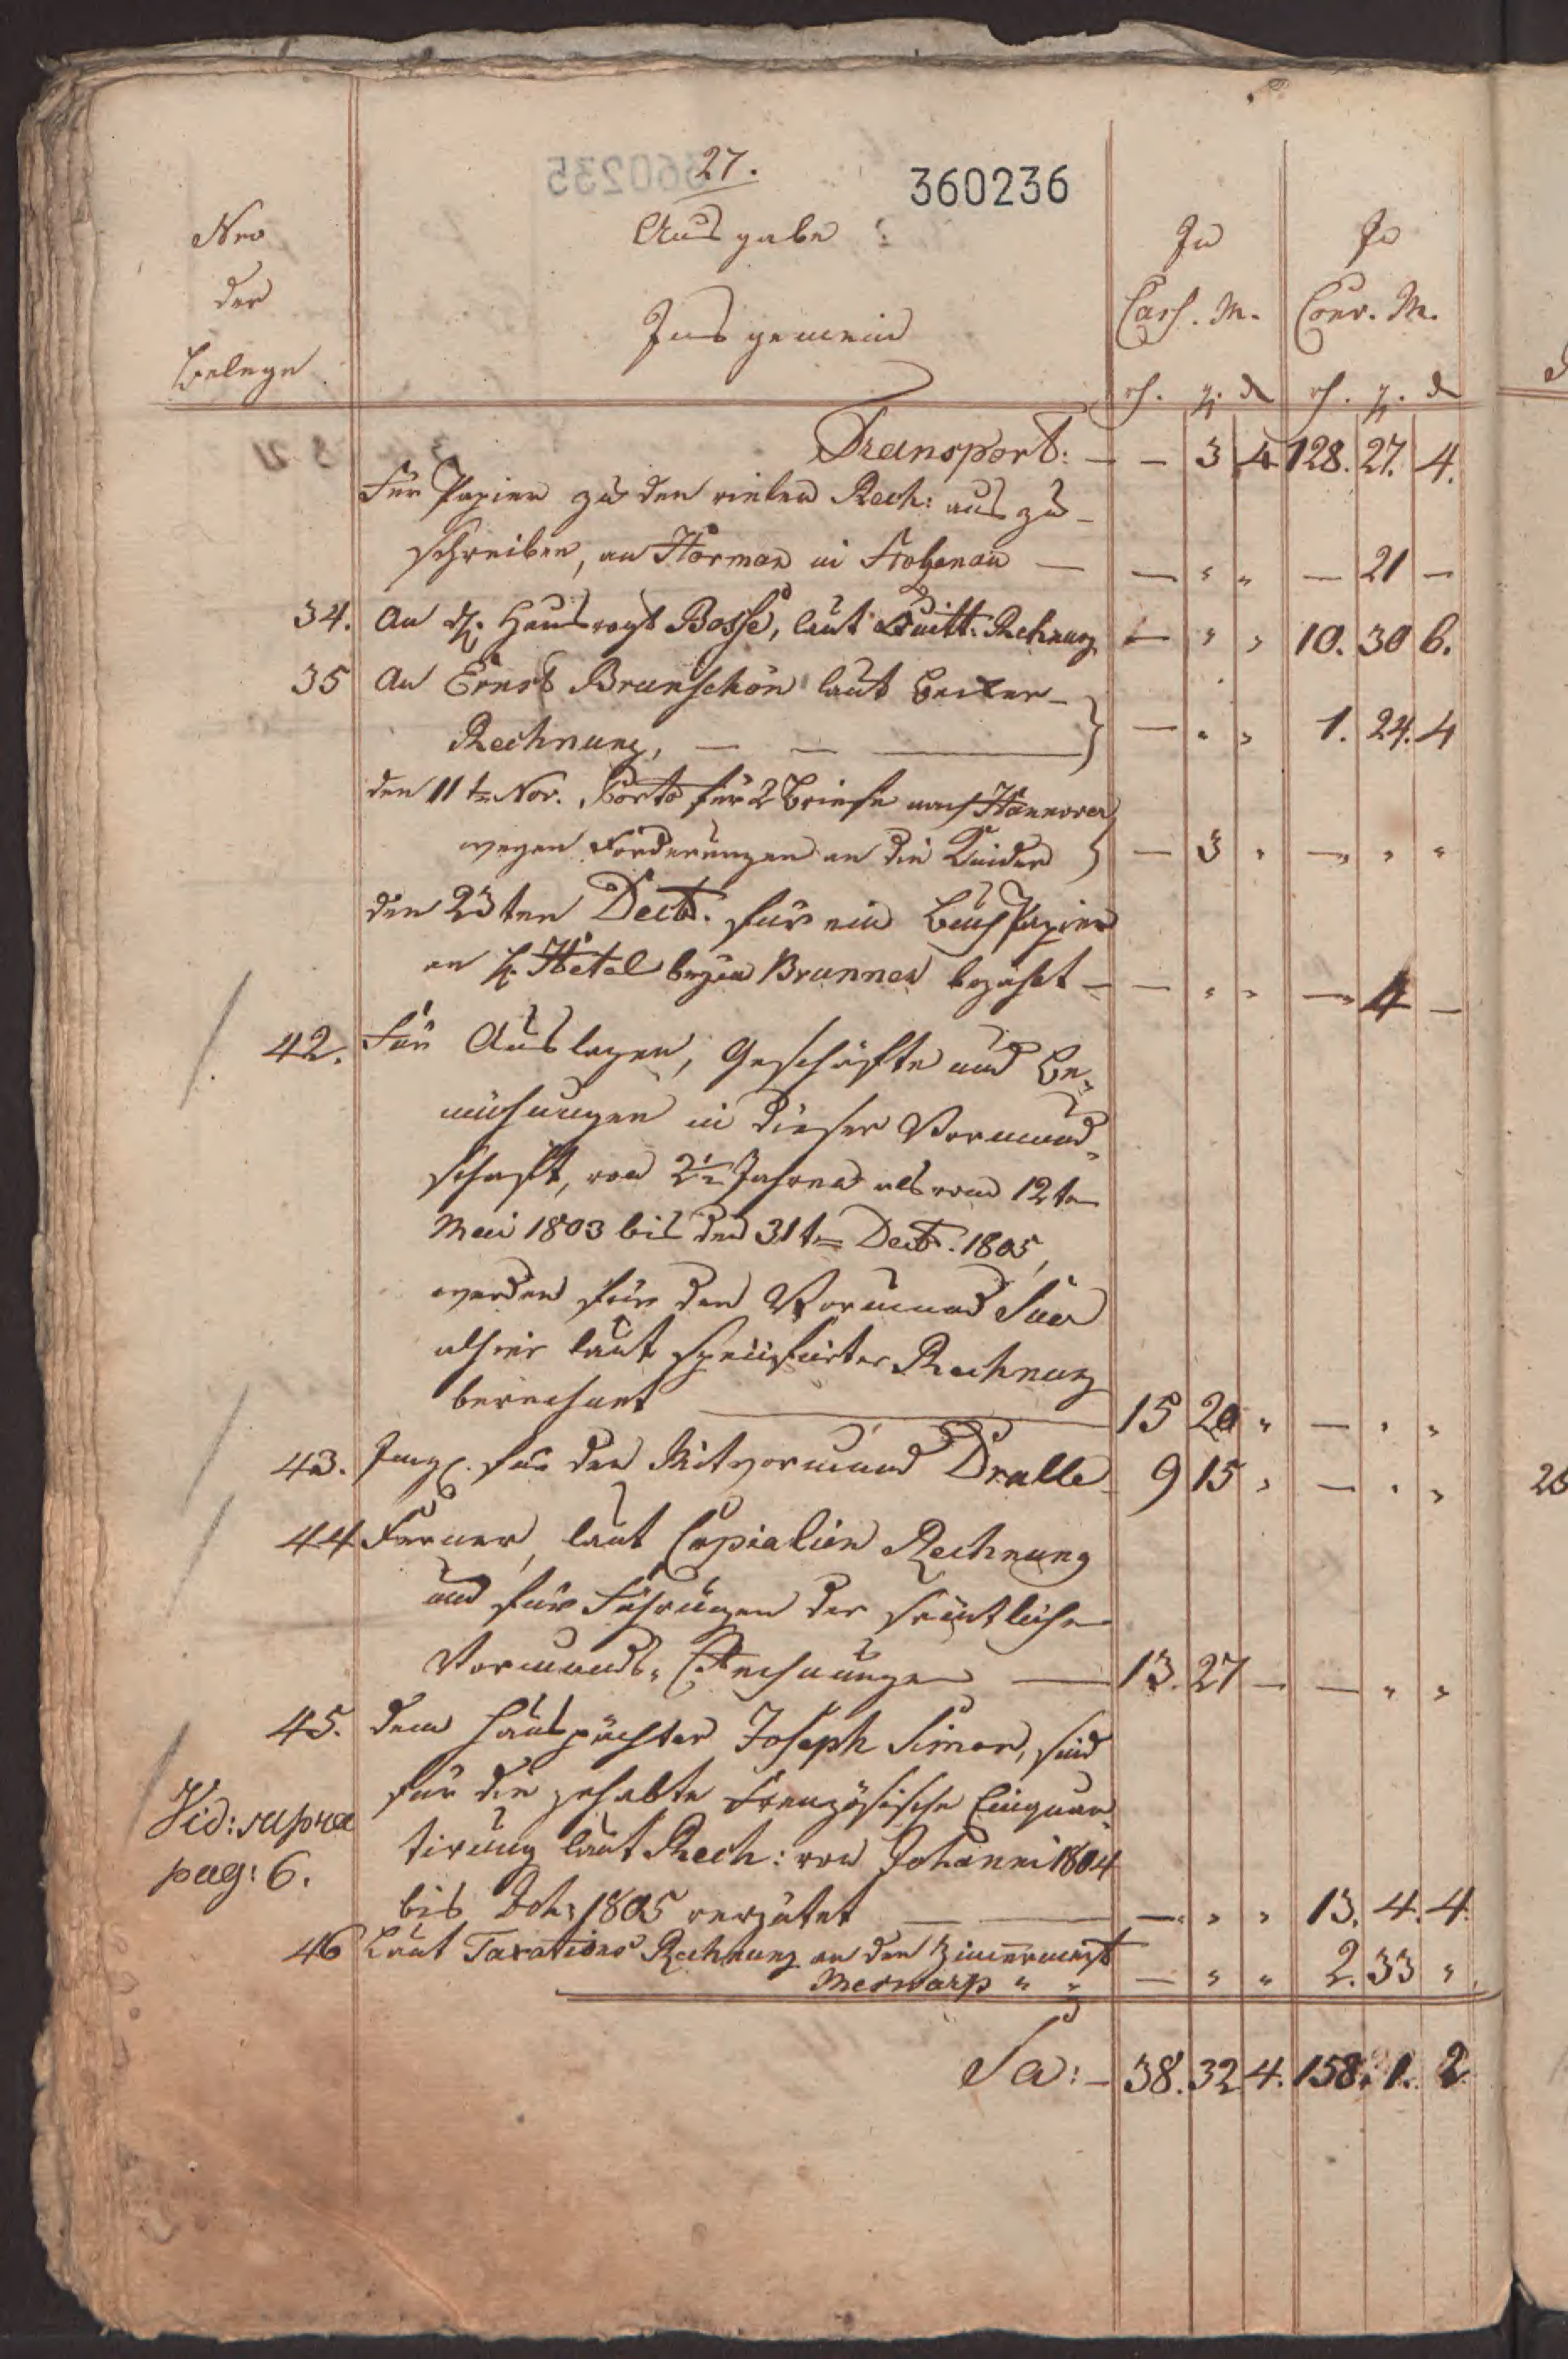 27.
360236
Nro
der
Belege
Ausgabe
Insgemein
In
Cass. M.
In
Conv. M.
rh. gr. d
rh. gr. d
Transport: — — 3 4 128. 27. 4.
Für Papier zu den vielen Rech: aus zu-
schreiben, an Horman in Stolzenau — — " " — 21 —
34. An H. Hausvogt Bosse, laut Quitt: Rechnung — " " 10. 30 6.
35 An Ernst Brunschön laut
Rechnung, — — — " " 1. 24. 4
den 11 ten Nov. Porto für 2 Briefe nach Hannover
wegen Forderungen an die — 3 " — " "
den 23ten Decb. für ein Buch Papier
an H. Hetal Brunnen bezahlt — — " " — 4 —
42. Für Auslagen, Geschäfte und Be-
mühungen in dieser Vormund-
schaft, von 2½ Jahren als vom 12ten
Mai 1803 bis den 31ten Decb. 1805,
werden für den Vormund
alhier laut specificirter Rechnung
berechnet — 15 20 " — " "
43. für den Mitvormund Dralle 9 15 " — " "
44 Ferner, laut Copialien Rechnung
und für Führungen der sämtlichen
Vormunds-Rechnungen — 13. 27 — — " "
45. dem Hauspächter Joseph Simon, sind
für die gehabte Französische Einquar-
tirung laut Rech: von Johanni 1804
bis Joh: 1805 vergütet — — — " " 13. 4. 4.
Vid: supra
pag: 6.
46 Laut Taxations Rechnung an den Zimermeist
" " — " " 2. 33 "
Sa: — 38. 32 4. 158. 1. 2.